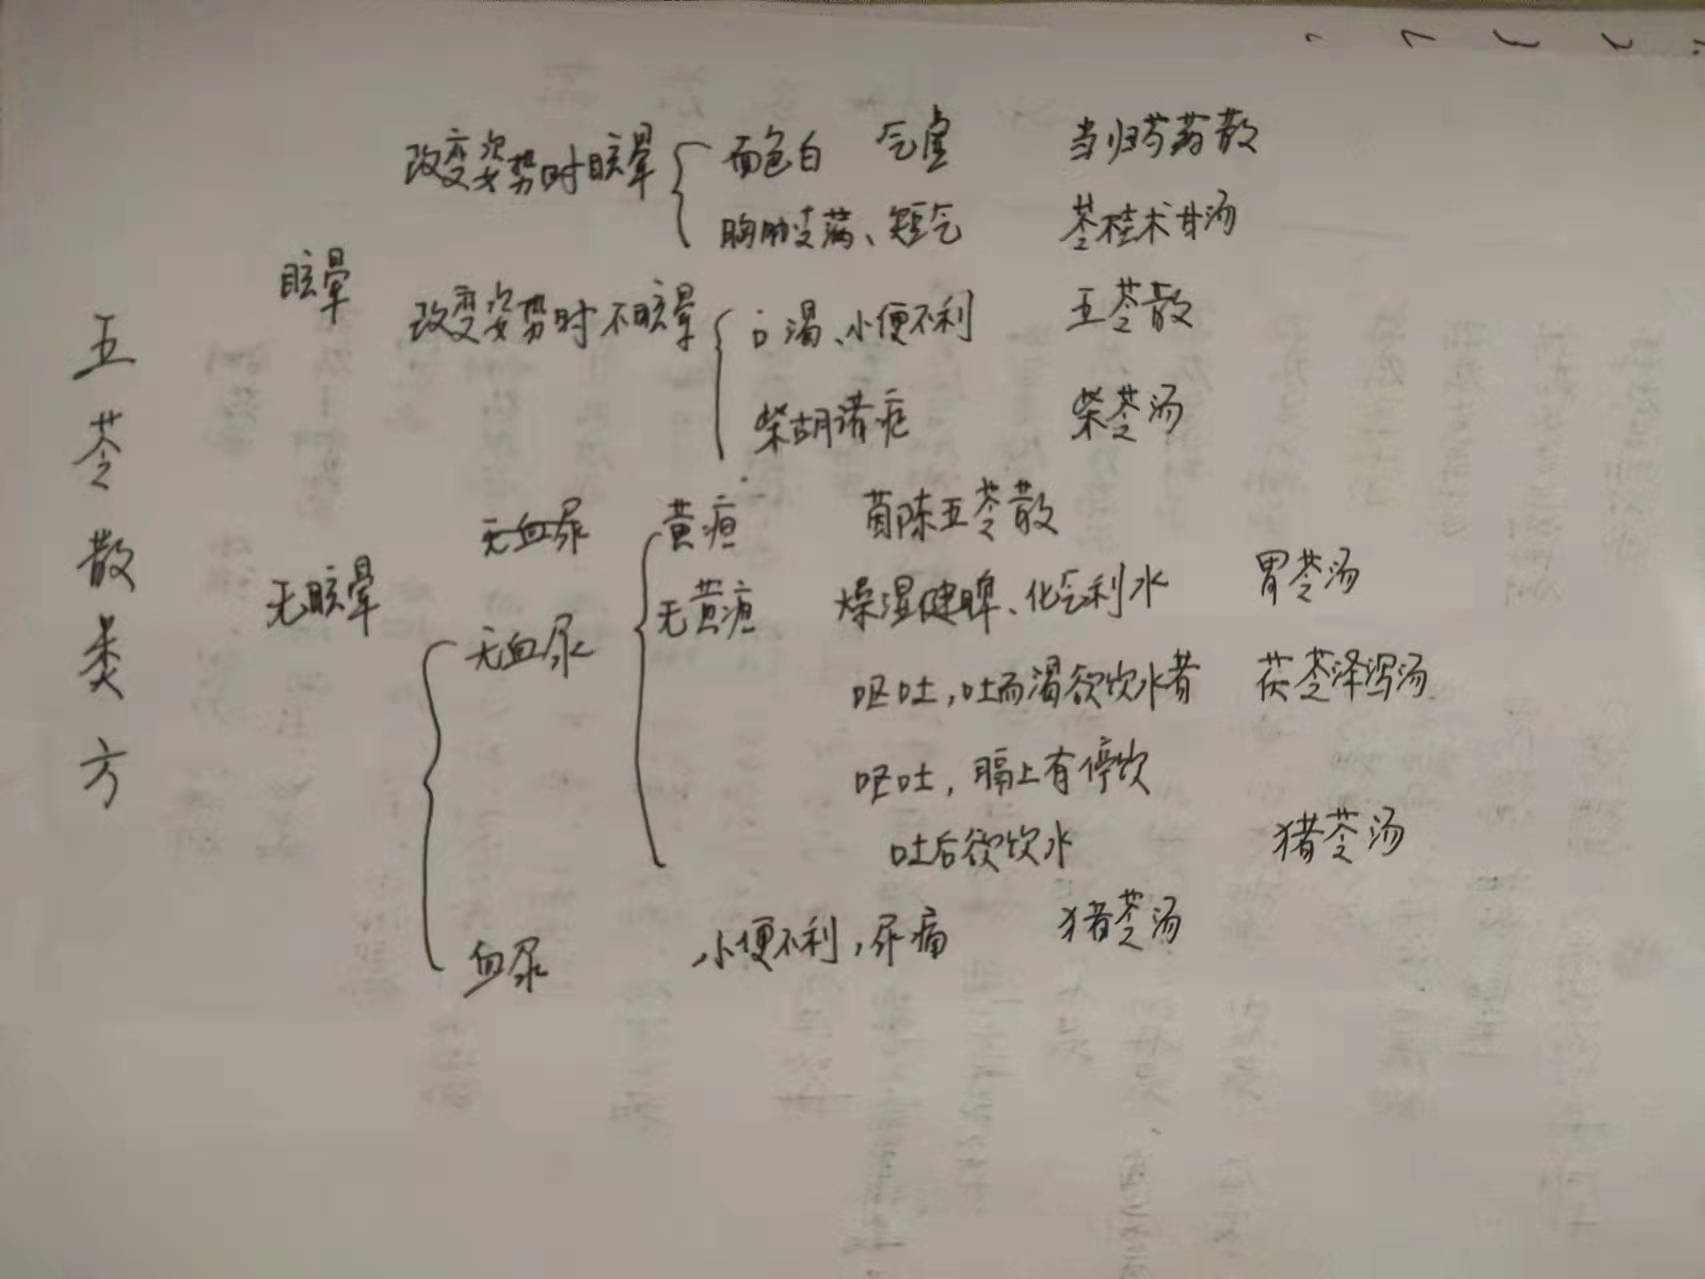 五苓散类方
眩晕
改变姿势时眩晕
面色白 气虚 当归芍药散
胸胁支满、短气 苓桂术甘汤
改变姿势时不眩晕
口渴、小便不利 五苓散
柴胡诸症 柴苓汤
无眩晕
无血尿
无血尿
黄疸 茵陈五苓散
无黄疸 燥湿健脾、化气利水 胃苓汤
呕吐,吐而渴欲饮水者 茯苓泽泻汤
呕吐,膈上有停饮
吐后欲饮水 猪苓汤
血尿 小便不利,尿痛 猪苓汤